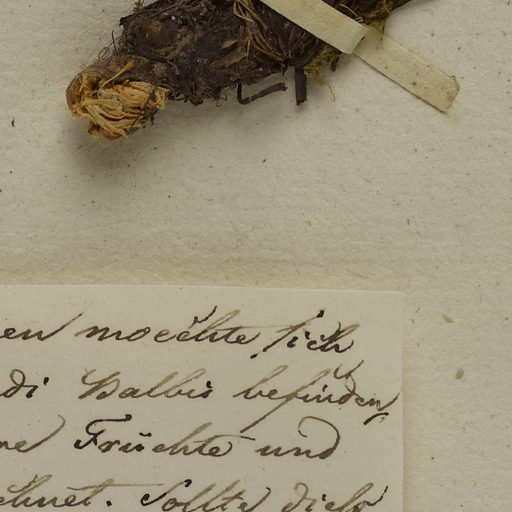 en moechte sich
di Balbis befinden,
ne Früchte und
chnet. Sollte diese